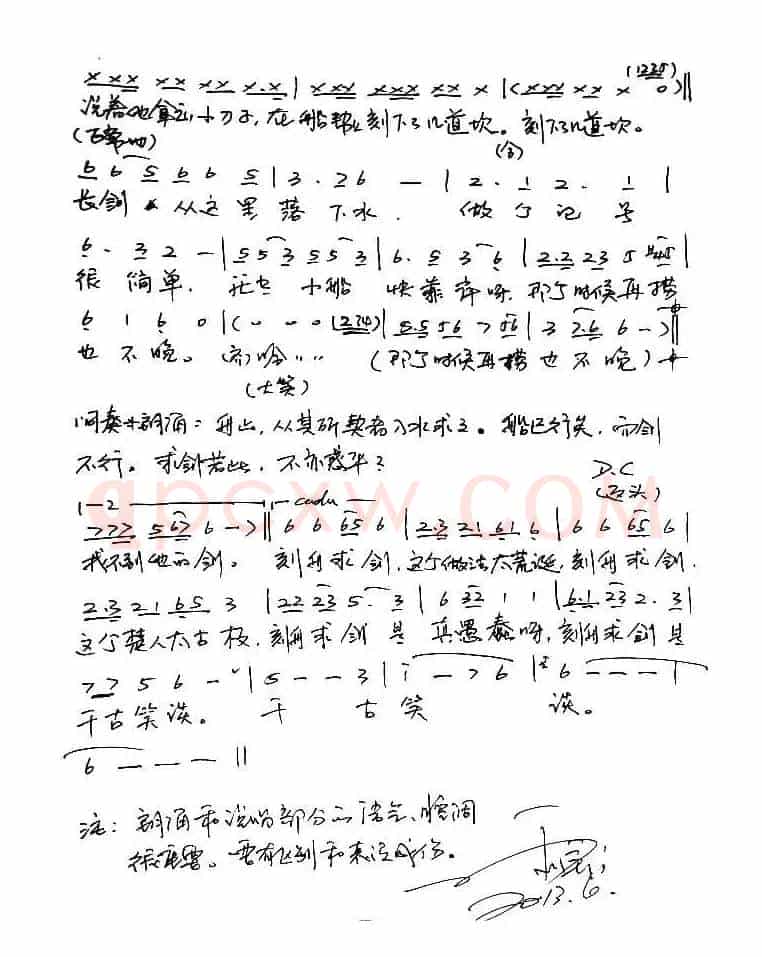 x x x x x x x x . x | x x x x x x x x x | ( x x x x x x 0 ) ‖ (1235)
说着他拿 小刀子,在船帮上刻下了几道坎。刻下了几道坎。
6 6 5 6 6 5 | 3 . 2 6 — | 2 . 1 2 . 1 |
长剑 从这里落下水. 做个记号
6 . 3 2 — | 5 5 3 5 5 3 | 6 . 5 3 6 | 2.2 2 3 5
很简单. 小船快靠岸呀.那个时候再捞
6 1 6 0 | 5.5 5 6 7 5 6 | 3 7.6 6 — ) ‖
也不晚。 哈 〃 (那个时候再捞也不晚)
(大笑)
间奏+朗诵:舟止,从其所契者入水求之。船已行矣,而剑
不行。求剑若此,不亦惑乎?
D.C
qpcxw.COM
1—2
7 7 7 5 6 7 6 — > ‖ 6 6 6 5 6 | 2.3 2 1 6 1 6 | 6 6 6 5 6 |
找不到他的剑。 刻舟求剑.这个做法太荒诞.刻舟求剑.
2.3 2 1 6 5 3 | 2 2 2 3 5 . 3 | 6 3 2 1 1 | 6.1 2 3 2 . 3 |
这个楚人太古板.刻舟求剑是真愚蠢呀.刻舟求剑是
7 7 5 6 — | 5 — — 3 | i — 7 6 | 6 — — — |
千古笑谈。 千古笑谈。
6 — — — ‖
注:朗诵和说唱部分的语气、腔调
很重要。要有区别和表演成份。
2013.6.